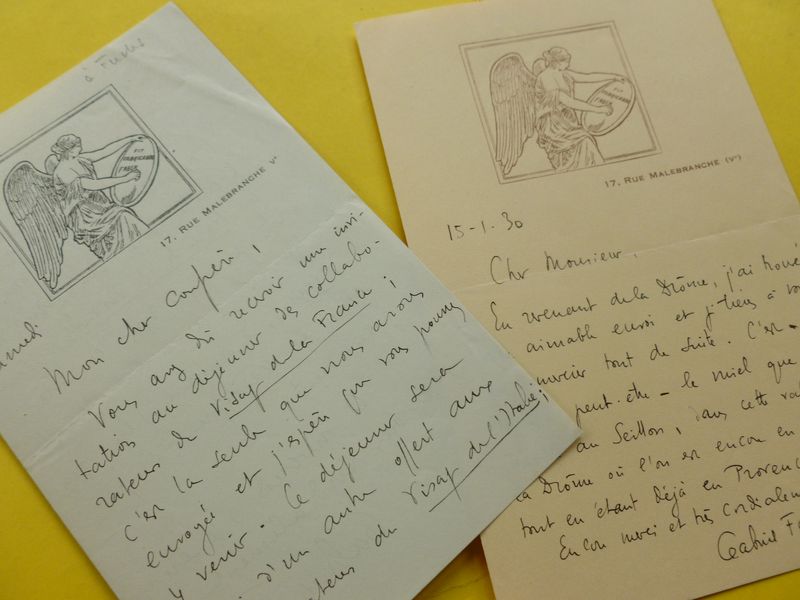 à Fuchs
17. RUE MALEBRANCHE Vᵉ
Mon cher confrère,
Vous avez dû recevoir une invi-
tation au déjeuner des collabo-
rateurs de Visage de la France ;
c'est la seule que nous avons
envoyée et j'espère que vous pourrez
y venir. Ce déjeuner sera
d'un autre offert aux
du Visage de l'Italie ;
17. RUE MALEBRANCHE (Vᵉ)
15-1-30
Cher Monsieur,
En revenant de la Drôme, j'ai trouvé
aimable envoi et je tiens à
tout de suite. C'est
peut-être - le miel que
au Seillon, dans cette
la Drôme où l'on est encore en
tout en étant déjà en Provence
Encore merci et très cordialement
Gabriel